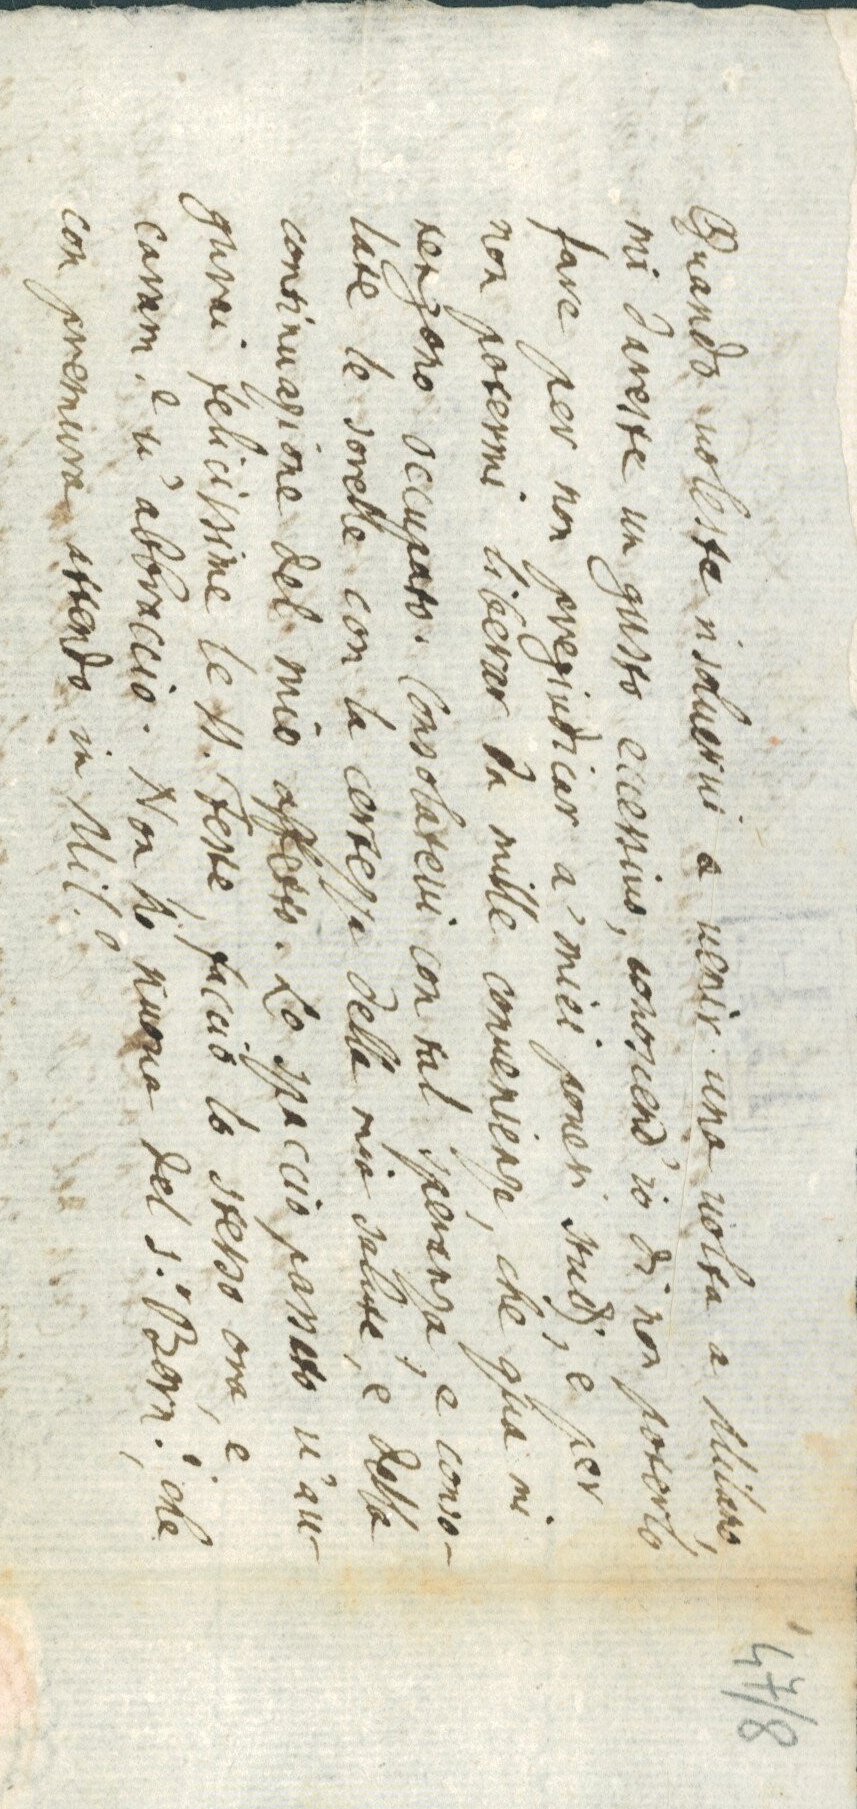 Quando uoleste risoluerui a uenir una uolta a Milano,
mi dareste un gusto eccessiuo, conoscend'io di non poterlo
fare per non pregiudicar a' miei poueri studj, e per
non potermi liberar da mille conuenienze, che qua mi
tengono occupato. Consolateui con tal speranza, e conso-
late le sorelle con la certezza della mia salute, e della
continuazione del mio affetto. Lo spaccio passato u'au-
gurai felicissime le SS. Feste, faccio lo stesso ora, e
caram.e u'abbraccio. Non hò nuoua del S.r Bern.o, che
con premura attendo in Mil.o
47/8